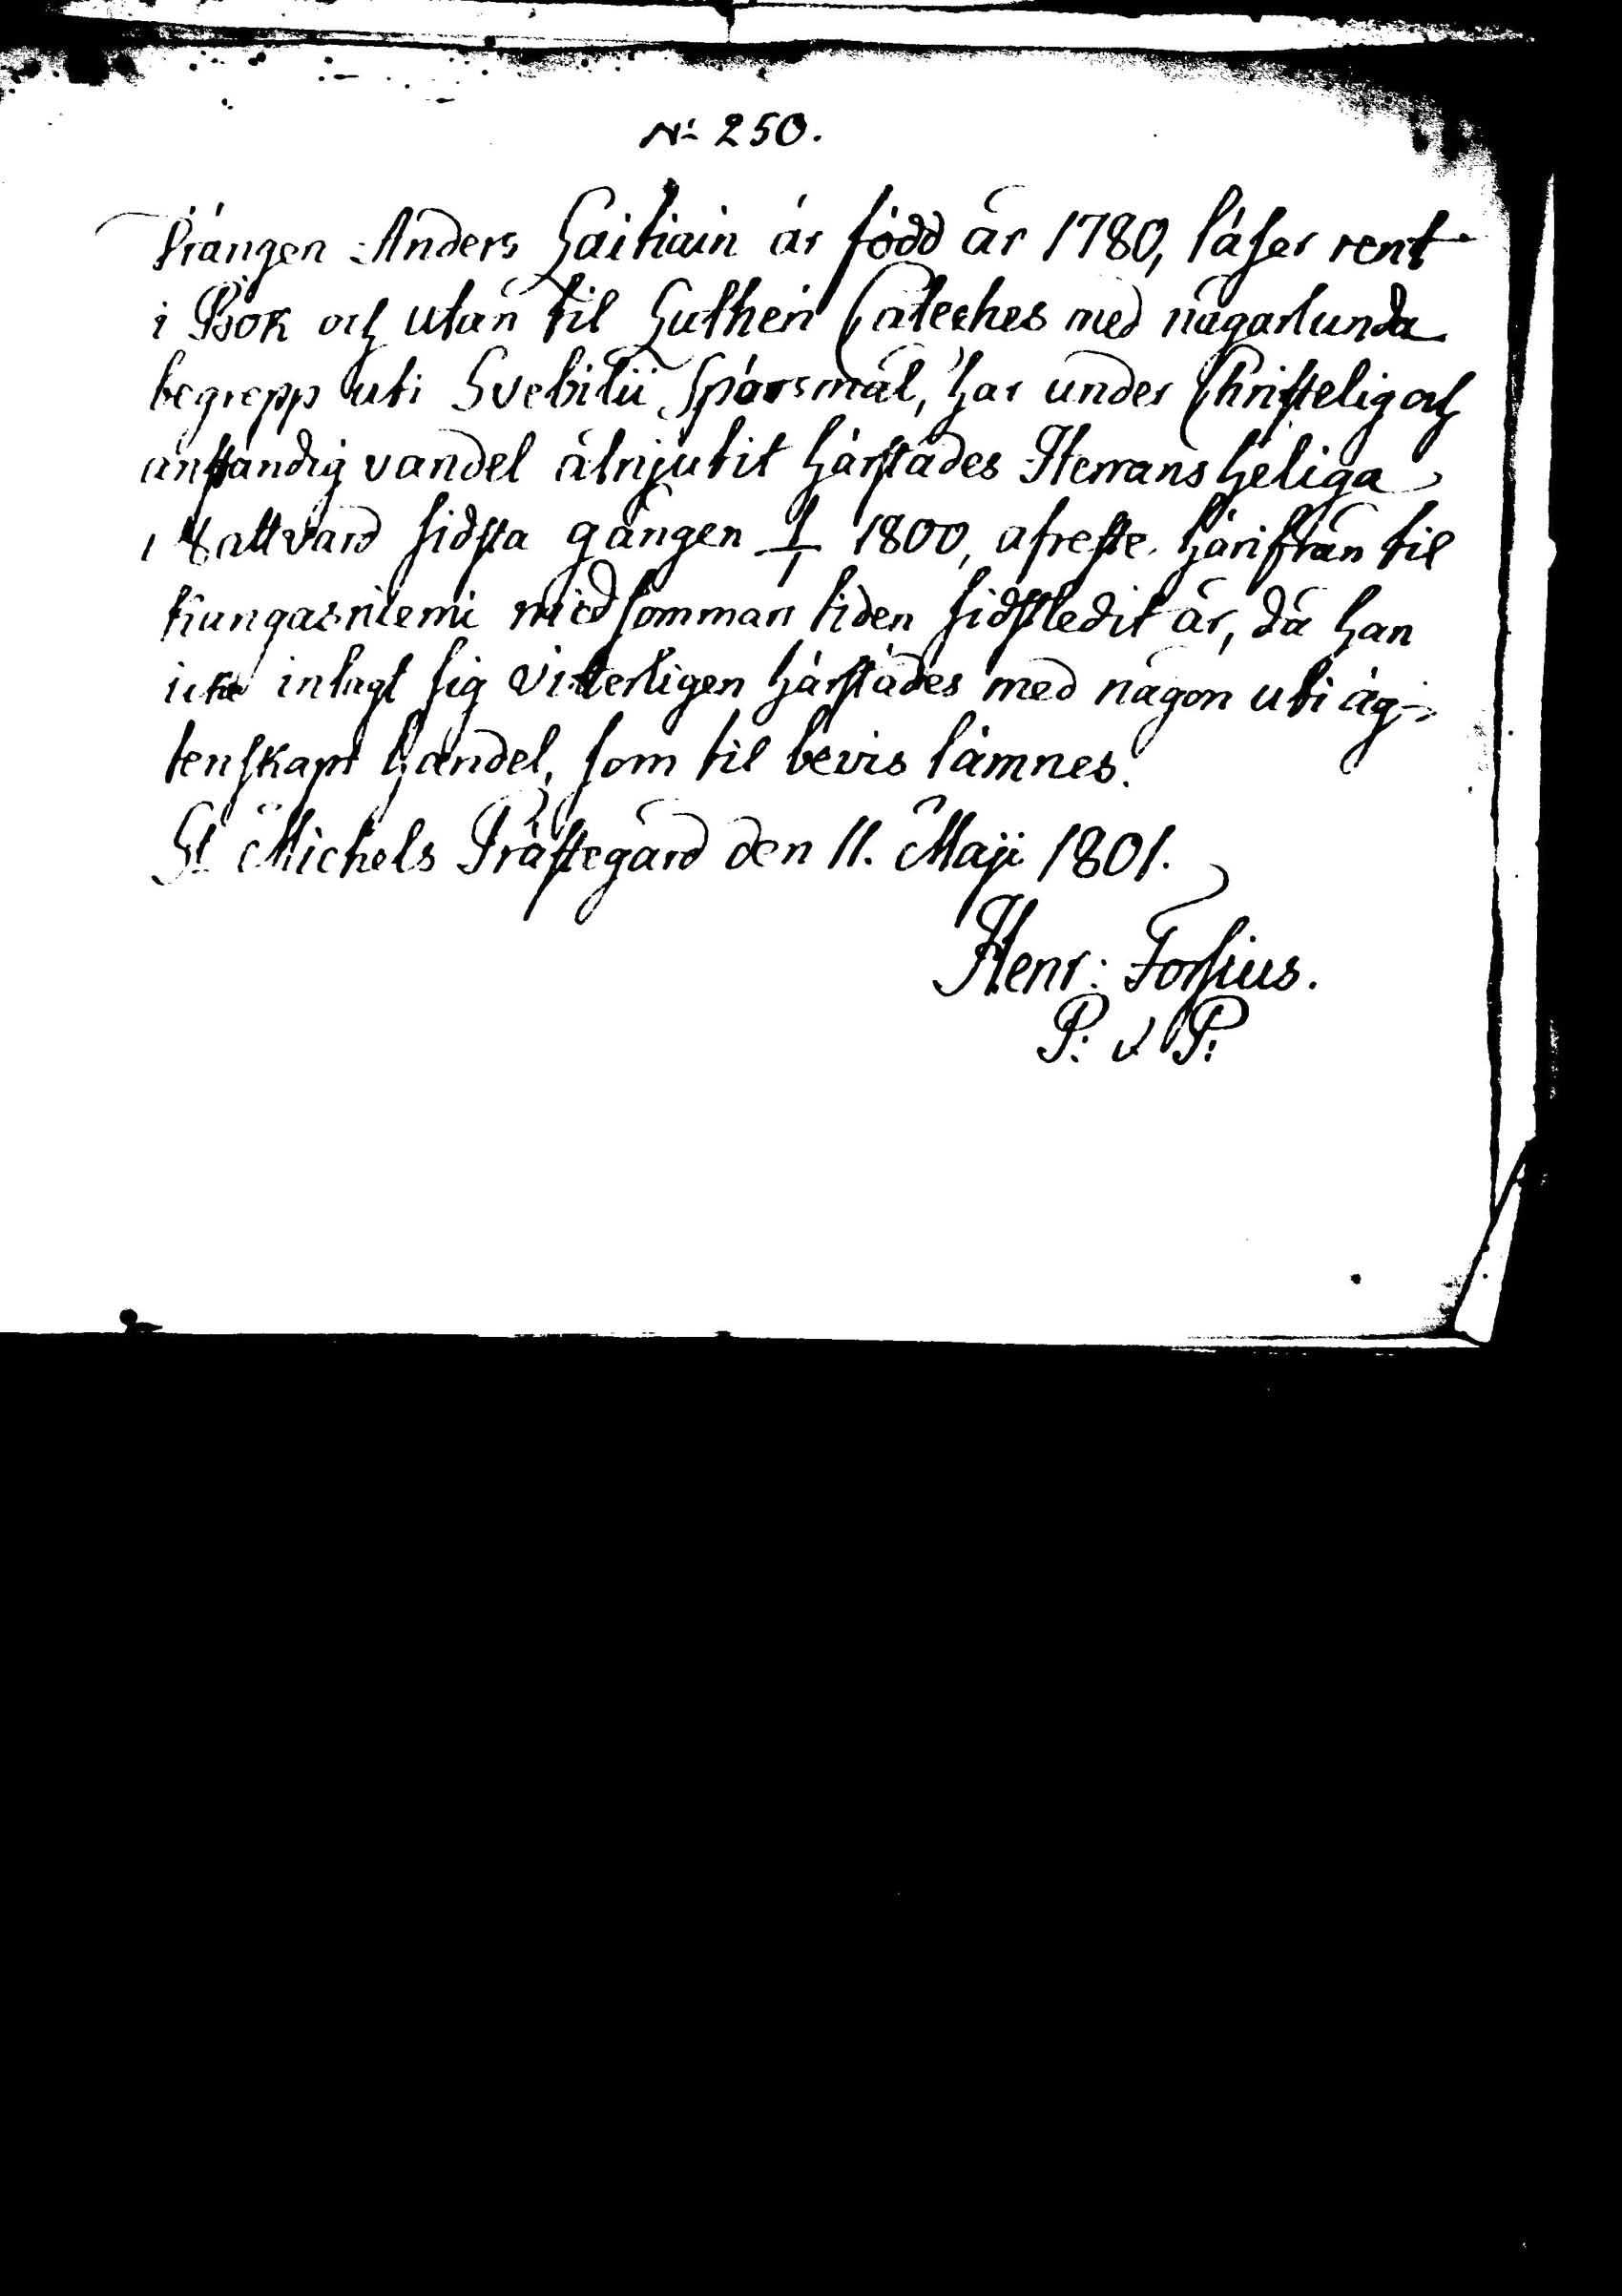 No 250.
Drängen Anders Laitiain är född år 1780, läser rent
i Bok och utan til Lutheri Cateches med någarlunda
begrepp uti Svebilii Spörsmål, har under Christelig och
anständig vandel åtnjutit härstädes Herrans Heliga
Nattvard sidsta gången 1/1 1800, afreste härifrån til
Kangasniemi midsommars tiden sidstledit år, då han
icke inlagt sig vitterligen härstädes med någon uti äg-
tenskaps handel, som til bevis lämnes.
St Michels Prästegård den 11. Maji 1801.
Henr: Forsius.
P: & P: